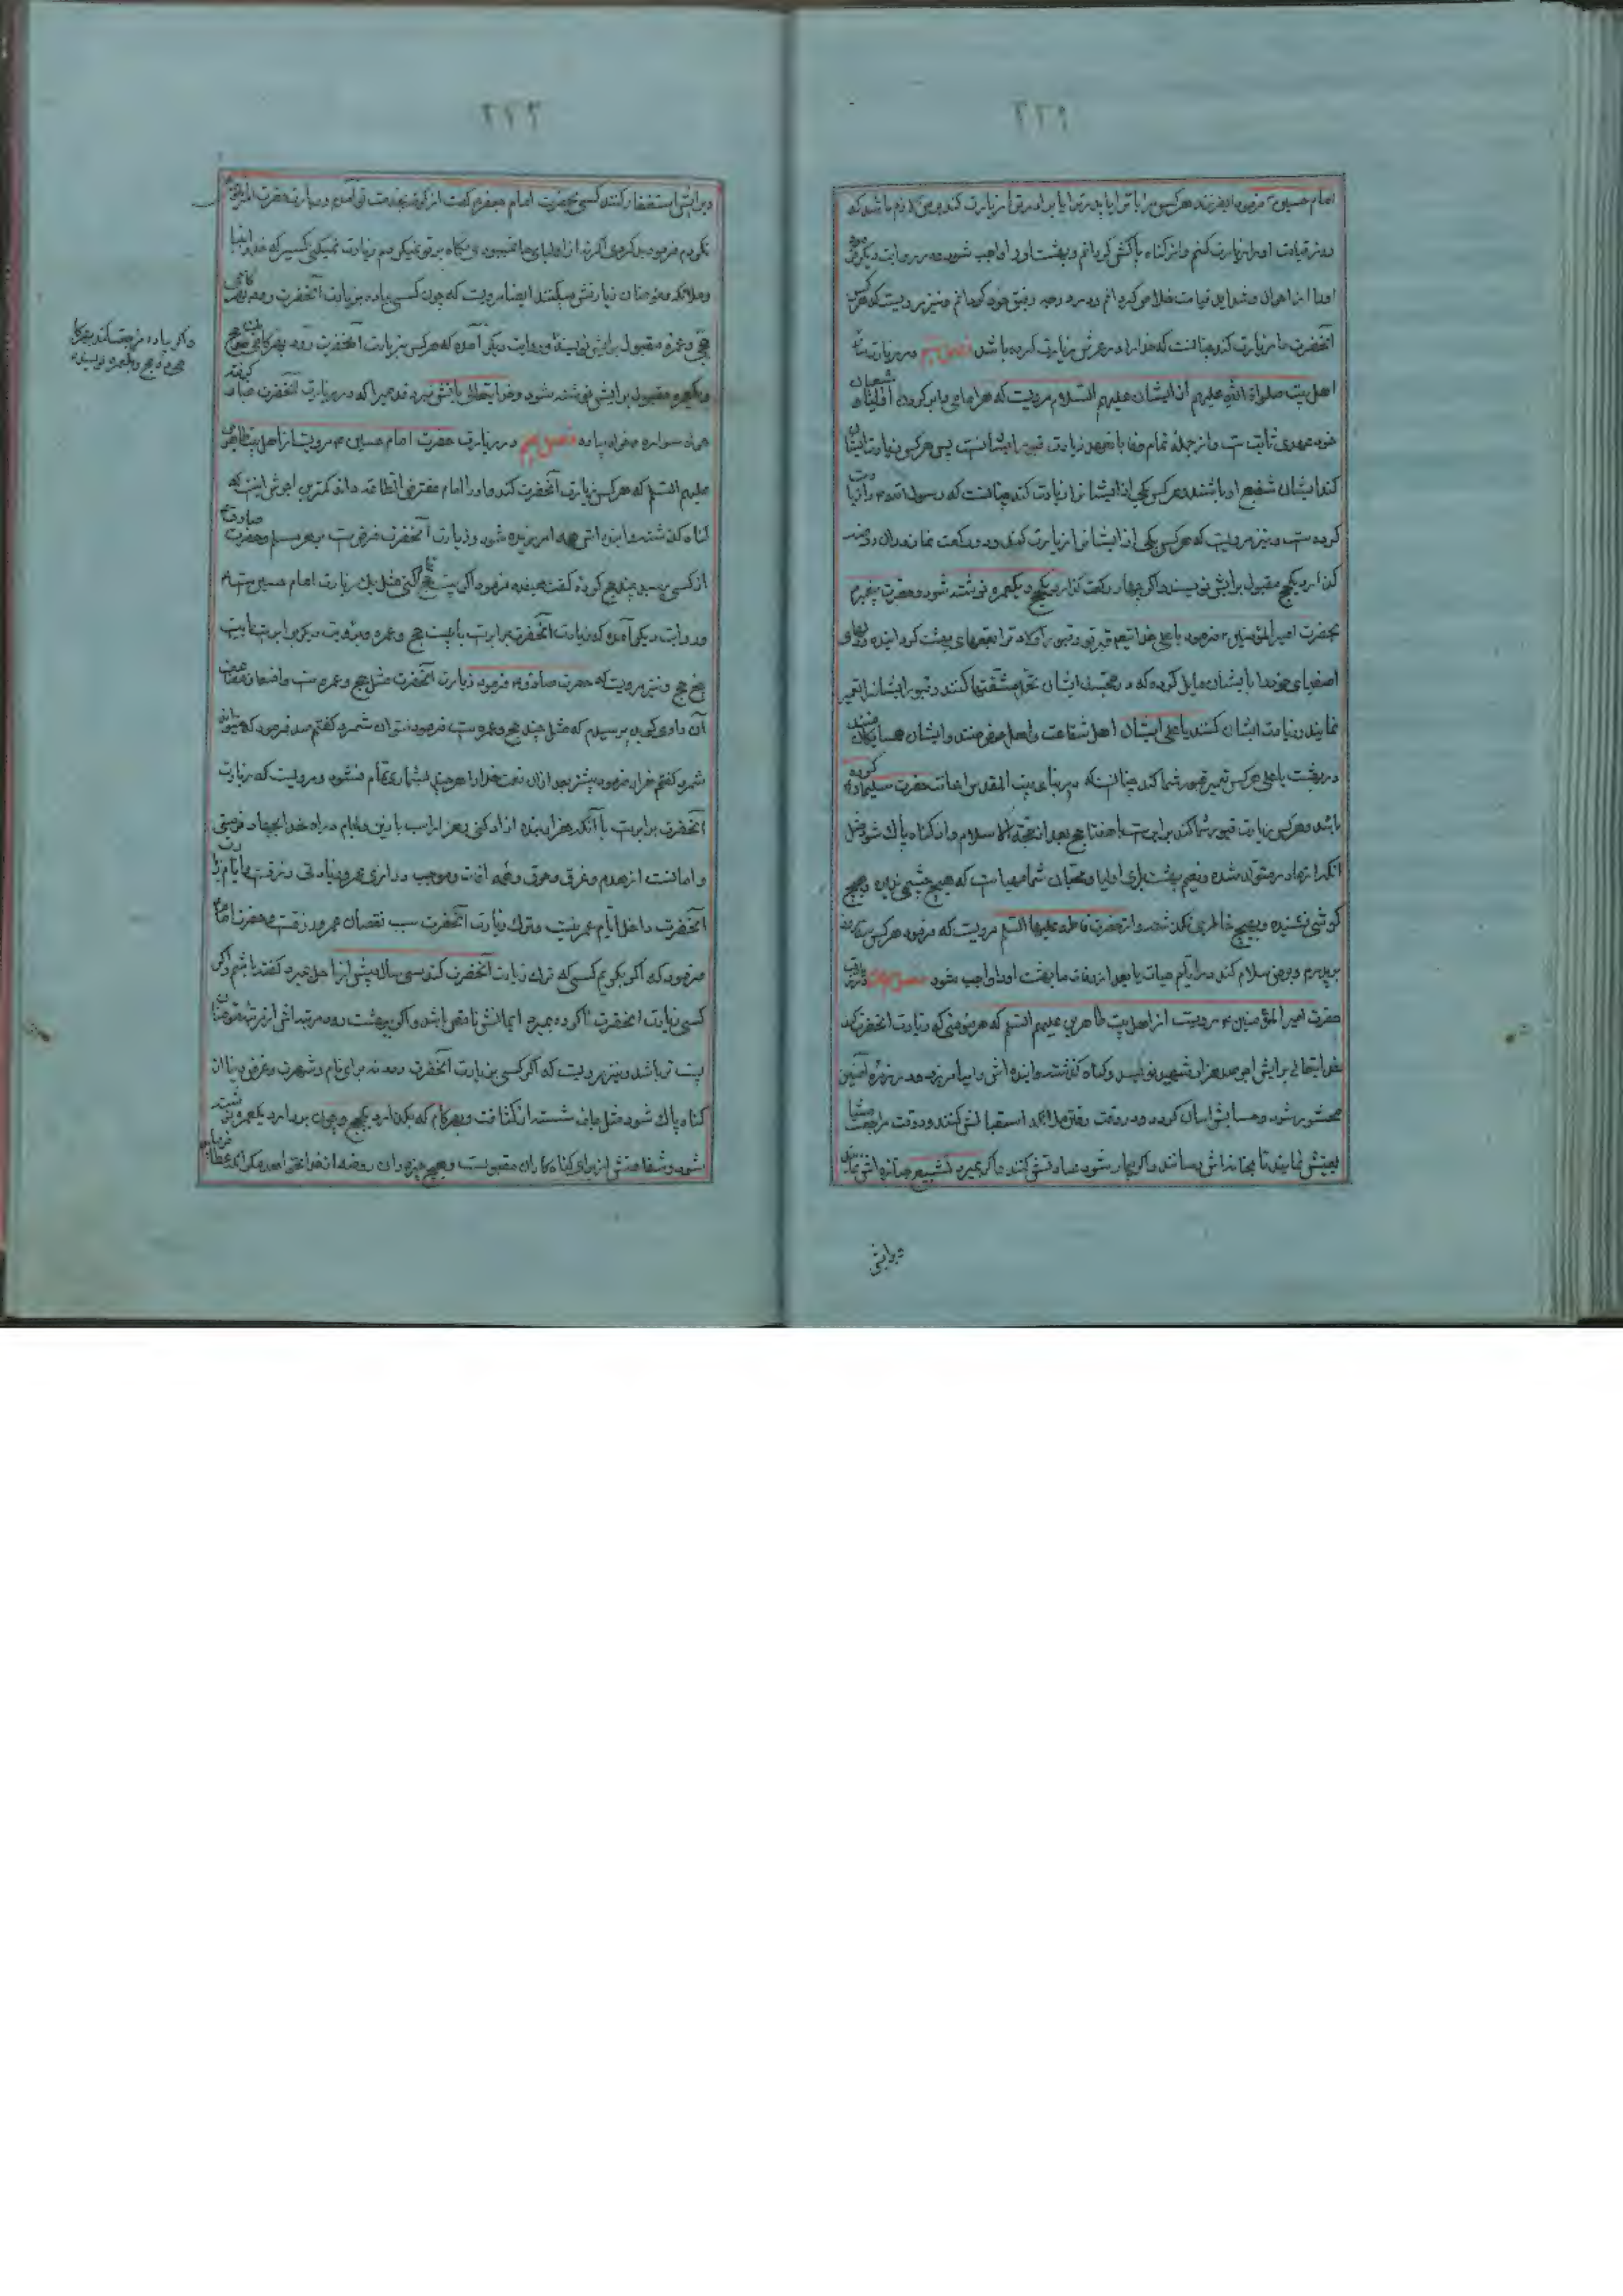 امام حسین فرمود ای فرزند هر کس مرا یا ترا یا پدر ترا یا برادر ترا زیارت کند بر من لازم باشد که
روز قیامت او را زیارت کنم و از گناه پاکش گردانم و بهشت او را واجب شود و در روایت دیگر
او را از اهوال و شداید قیامت خلاص گردانم و در درجه رفیق خود گردانم و نیز مرویست که هر کس
آنحضرت ما زیارت کند چنانست که خدا را در عرش زیارت کرده باشد فصل در زیارت
اهل بیت صلواة الله علیهم از ایشان علیهم السلام مرویست که هر امامی را بر گردن شیعیان
خود عهدی ثابتست و از جمله تمام وفا بعهد زیارت قبور ایشانست پس هر کس زیارت ایشان
کند ایشان شفیع او باشند و هر کس یکی از ایشانرا زیارت کند چنانست که رسول الله را زیارت
کرده است و نیز مرویست که هر کس یکی از ایشانرا زیارت کند و دو رکعت نماز در آن روضه
گذارد یکحج مقبول برایش نویسند و اگر چهار رکعت گذارد یکحج و یکعمره نوشته شود و حضرت پیغمبر
بحضرت امیر المؤمنین فرمود یا علی خدایتعالی قبر تو و قبور اولاد ترا بقعهای بهشت گردانیده و دلهای
اصفیای خود را بایشان مایل کرده که در محبت ایشان تحمل مشقتها کنند و قبور ایشانرا تعمیر
نمایند و زیارت ایشان کنند یا علی ایشان اهل شفاعت و اهل حوض منند و ایشان همسایگان منند
در بهشت یا علی هر کس تعمیر قبور شما کند چنانست که در بنای بیت المقدس اعانت حضرت سلیمان کرده
باشد و هر کس زیارت قبور شما کند برابرست با هفتاد حج بعد از حجة الاسلام و از گناه پاک شود مثل
آنکه از مادر متولد شده و نعیم بهشت برای اولیا و محبان شما مهیاست که هیچ چشمی ندیده و هیچ
گوشی نشنیده و بهیچ خاطری نگذشته و از حضرت فاطمه علیها السلم مرویست که فرمود هر کس سه روز
بر پدرم و بر من سلام کند در ایام حیات یا بعد از وفات ما بهشت او را واجب شود فصل در زیارت
حضرت امیر المؤمنین مرویست از اهل بیت طاهرین علیهم السلم که هر مؤمنی که زیارت آنحضرت کند
خدایتعالی برایش اجر صد هزار شهید نویسد و گناه گذشته و آینده اش را بیامرزد و در زمره آمنین
محشور شود و حسابش آسان گردد و در وقت رفتن ملائکه استقبالش کنند و در وقت مراجعت مشایعتش
نمایند تا بخانه اش رسانند و اگر بیمار شود عیادتش کنند و اگر بمیرد تشییع جنازه اش نمایند
و برایش
و برایش استغفار کنند کسی بحضرت امام جعفر گفت از کوفه بخدمت تو آمدم و زیارت حضرت امیر
نکردم فرمود بد کردی اگر نه از اولیای ما نمیبودی نگاه بر تو نمیکردم زیارت نمیکنی کسیرا که خدا و انبیا
و ملائکه و مؤمنان زیارتش میکنند ایضا مرویست که چون کسی پیاده بزیارت آنحضرت رود بهر گامی
حجی و عمره مقبول برایش نویسند و بروایت دیگر آمده که هر کس بزیارت آنحضرت رود بهر گامی حج
و یکعمره مقبول برایش نوشته شود و خدایتعالی بآتش نبرد قدمیرا که در زیارت آنحضرت غبار گرفته
خواه سواره خواه پیاده فصل در زیارت حضرت امام حسین مرویست از اهل بیت طاهرین
علیهم السلم که هر کس زیارت آنحضرت کند و او را امام مفترض الطاعه داند کمترین اجرش اینست که
گناه گذشته و آینده اش همه آمرزیده شود و زیارت آنحضرت فرض است بر هر مسلم و حضرت صادق
از کسی پرسید چند حج کرده گفت نوزده فرمود اگر بیست حج کنی مثل یک زیارت امام حسین است
و در روایت دیگر آمده که زیارت آنحضرت برابرست با بیست حج و عمره و بروایت دیگر برابرست با بیست
پنج حج و نیز مرویست که حضرت صادق فرمود زیارت آنحضرت مثل حج و عمره است و اضعاف مضاعف
آن راوی گوید پرسیدم که مثل چند حج و عمره است فرمود نتوان شمرد گفتم صد فرمود که نتوان
شمرد گفتم هزار فرمود بیشتر بعد از آن نعمت خدا را هر چند بشمارید تمام نشود و مرویست که زیارت
آنحضرت برابرست با آنکه هزار بنده آزاد کنی و هزار اسب با زین و لجام در راه خدا بجهاد فرستی
و امانست از هدم و غرق و حرق و همه آفات و موجب درازی عمر و زیادتی رزقست و ایام زیارت
آنحضرت داخل ایام عمر نیست و ترک زیارت آنحضرت سبب نقصان عمر و رزقست و حضرت امام
فرمود که اگر بگویم کسی که ترک زیارت آنحضرت کند سی سال پیش از اجل میرد گفته باشم و اگر
کسی زیارت آنحضرت ناکرده بمیرد ایمانش ناقص باشد و اگر ببهشت رود مرتبه اش از مرتبه مؤمنان
پست تر باشد و نیز مرویست که اگر کسی بزیارت آنحضرت رود نه برای نام و شهرت و غرض دنیا از
گناه پاک شود مثل جامه شسته از کثافت و بهر گام که بگذارد یکحج و چون بردارد یکعمره نوشته
شود و شفاعتش از برای گناهکاران مقبولست و هیچ چیز در آن روضه از خدا نخواهد مگر آنکه عطا
و اگر پیاده مراجعت کند بهر گام
دو حج و دو عمره نویسند